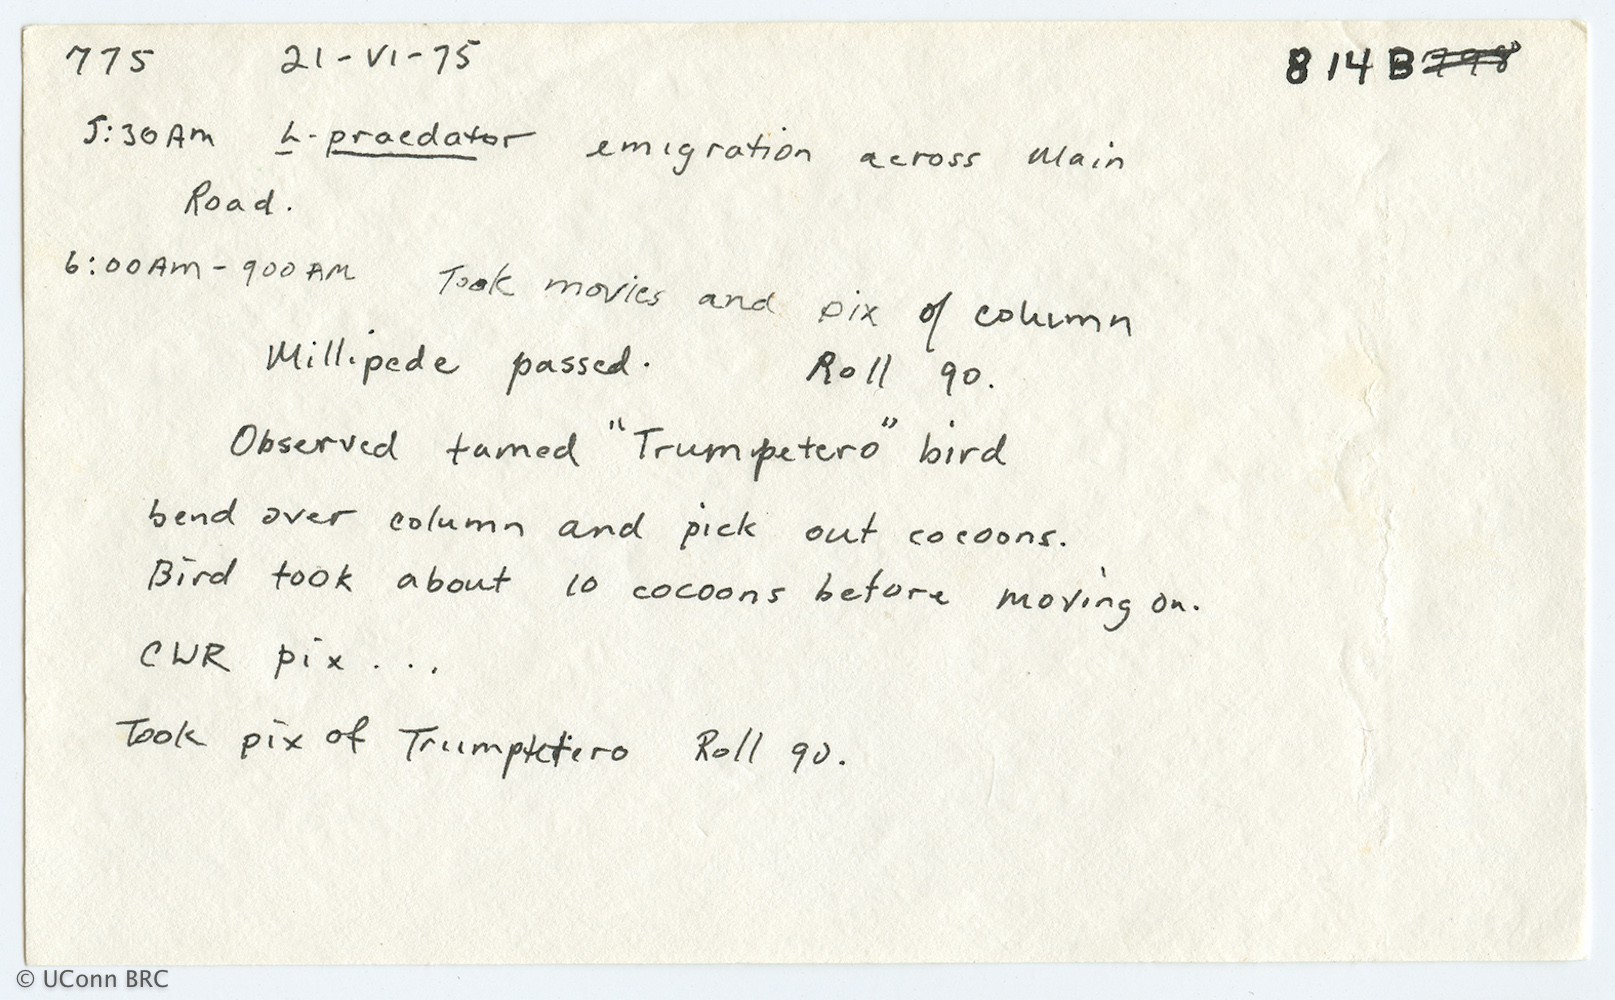 775 21-VI-75 814B 798
5:30AM L. praedator emigration across Main
Road.
6:00AM - 900AM Took movies and pix of column
Millipede passed. Roll 90.
Observed tamed "Trumpetero" bird
bend over column and pick out cocoons.
Bird took about 10 cocoons before moving on.
CWR pix . . .
Took pix of Trumptetero Roll 90.
© UConn BRC